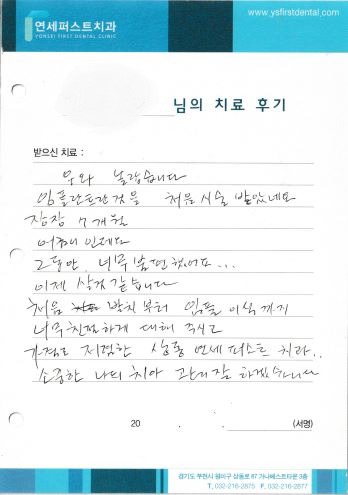 연세퍼스트치과
YONSEI FIRST DENTAL CLINIC
www.ysfirstdental.com
님의 치료 후기
받으신 치료 :
우와 놀랍습니다
임플란트란것을 처음 시술 받았네요
장장 7개월
어금니 인데다
그동안, 너무 불편했어요...
이제 살것 같습니다
처음 발치 부터 임플 이식 까지
너무 친절하게 대해 주시고
가정로 지정한 상동 연세퍼스트 치과..
소중한 나의 치아 관리 잘 하겠습니다
20 . . . (서명)
경기도 부천시 원미구 상동로 87 가나베스트타운 3층
T. 032-216-2875 F. 032-216-2877